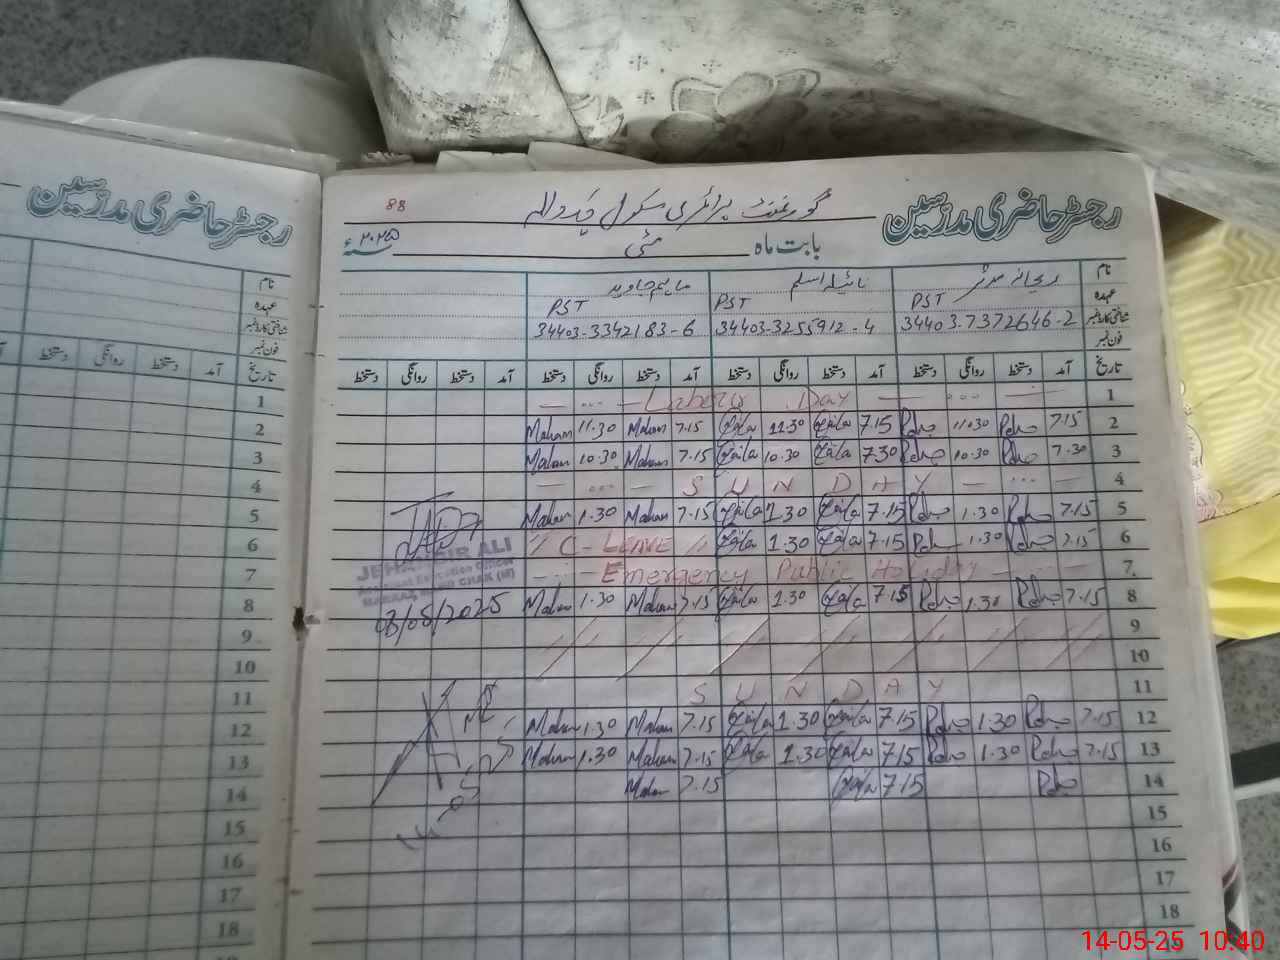 رجسٹر حاضری مدرسین
نام
عہدہ
شناختی کارڈ نمبر
فون نمبر
دستخط روانگی دستخط آمد تاریخ
1
2
3
4
5
6
7
8
9
10
11
12
13
14
15
16
17
18
88
رجسٹر حاضری مدرسین گورنمنٹ پرائمری سکول
بابت ماہ مئی سنہ ۲۰۲۵ء
نام ریحانہ نائیلہ اسلم ماہم جاوید
عہدہ PST PST PST
شناختی کارڈ نمبر 34403-7372646-2 34403-3255912-4 34403-3342183-6
فون نمبر
تاریخ آمد دستخط روانگی دستخط آمد دستخط روانگی دستخط آمد دستخط روانگی دستخط آمد دستخط روانگی دستخط
— ... — Labour Day — ... — 1
Maham 11.30 Maham 7.15 11.30 7.15 11.30 7.15 2
Maham 10.30 Maham 7.15 10.30 7.30 10.30 7.30 3
— ... — SUNDAY — ... — 4
Maham 1.30 Maham 7.15 1.30 7.15 1.30 7.15 5
// C-LEAVE // 1.30 7.15 1.30 7.15 6
JEHANGIR ALI
Emergency Public Holiday 7
08/05/2025 Maham 1.30 Maham 7.15 1.30 7.15 1.30 7.15 8
9
10
SUNDAY 11
Maham 1.30 Maham 7.15 1.30 7.15 1.30 7.15 12
Maham 1.30 Maham 7.15 1.30 7.15 1.30 7.15 13
Maham 7.15 7.15 14
15
16
17
18
14-05-25 10:40